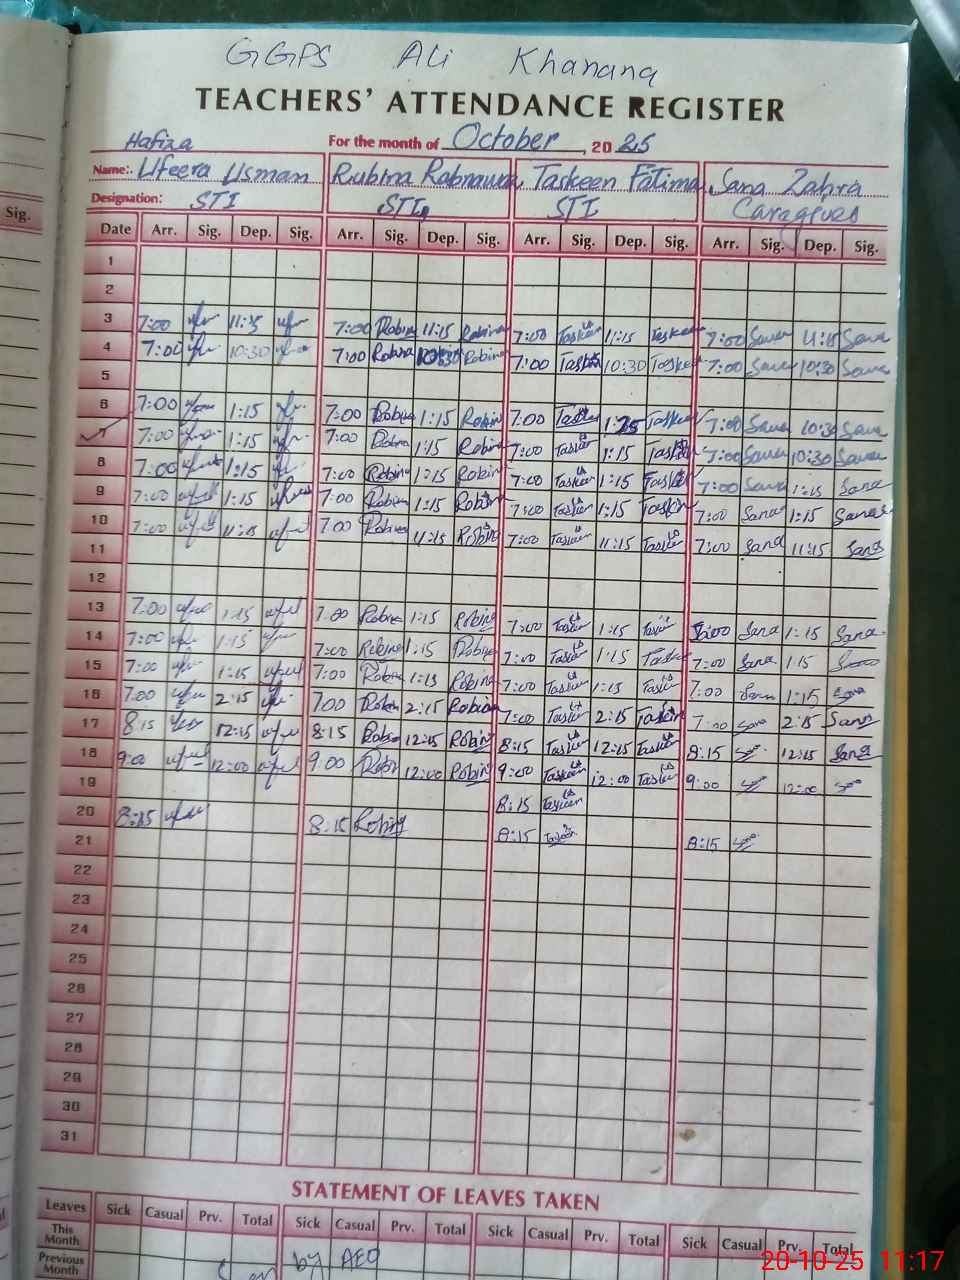 GGPS Ali Khanana
TEACHERS' ATTENDANCE REGISTER
For the month of October, 2025
Hafiza
Name: Ufeera Usman Rubina Rabnawaz Taskeen Fatima Sana Zahra
Sig.
Designation: STI STI STI
Date Arr. Sig. Dep. Sig. Arr. Sig. Dep. Sig. Arr. Sig. Dep. Sig. Arr. Sig. Dep. Sig.
1
2
3 7:00 7:00 Robina 11:15 Robina 7:00 Taskeen 11:15 Taskeen 7:00 Sana 11:15 Sana
4 7:00 10:30 7:00 Robina 10:30 Robina 7:00 Taskeen 10:30 Taskeen 7:00 Sana 10:30 Sana
5
6 7:00 1:15 7:00 Robina 1:15 Robina 7:00 Taskeen Taskeen 7:00 Sana 10:30 Sana
7 7:00 1:15 7:00 Robina 1:15 Robina 7:00 Taskeen 1:15 Taskeen 7:00 Sana 10:30 Sana
8 7:00 1:15 7:00 Robina 1:15 Robina 7:00 Taskeen 1:15 Taskeen 7:00 Sana 1:15 Sana
9 7:00 1:15 7:00 Robina 1:15 Robina 7:00 Taskeen 1:15 Taskeen 7:00 Sana 1:15 Sana
10 7:00 11:15 7:00 Robina 11:15 Robina 7:00 Taskeen 11:15 Taskeen 7:00 Sana 11:15 Sana
11
12
13 7:00 1:15 7:00 Robina 1:15 Robina 7:00 Taskeen 1:15 Taskeen Sana 1:15 Sana
14 7:00 1:15 7:00 Robina 1:15 Robina 7:00 Taskeen 1:15 Taskeen 7:00 Sana 1:15
15 7:00 1:15 7:00 Robina 1:15 Robina 7:00 Taskeen 1:15 Taskeen 7:00 Sana 1:15 Sana
16 7:00 2:15 7:00 Robina 2:15 Robina 7:00 Taskeen 2:15 Taskeen 7:00 Sana 2:15 Sana
17 8:15 12:15 8:15 Robina 12:15 Robina 8:15 Taskeen 12:15 Taskeen 8:15 12:15 Sana
18 9:00 12:00 9:00 Robina 12:00 Robina 9:00 Taskeen 12:00 Taskeen 9:00 12:00
19 8:15 Taskeen
20 8:15 8:15 Robina 8:15 Taskeen 8:15
21
22
23
24
25
26
27
28
29
30
31
STATEMENT OF LEAVES TAKEN
Leaves Sick Casual Prv. Total Sick Casual Prv. Total Sick Casual Prv. Total Sick Casual Prv. Total
This Month
Previous Month by AEO
20-10-25 11:17